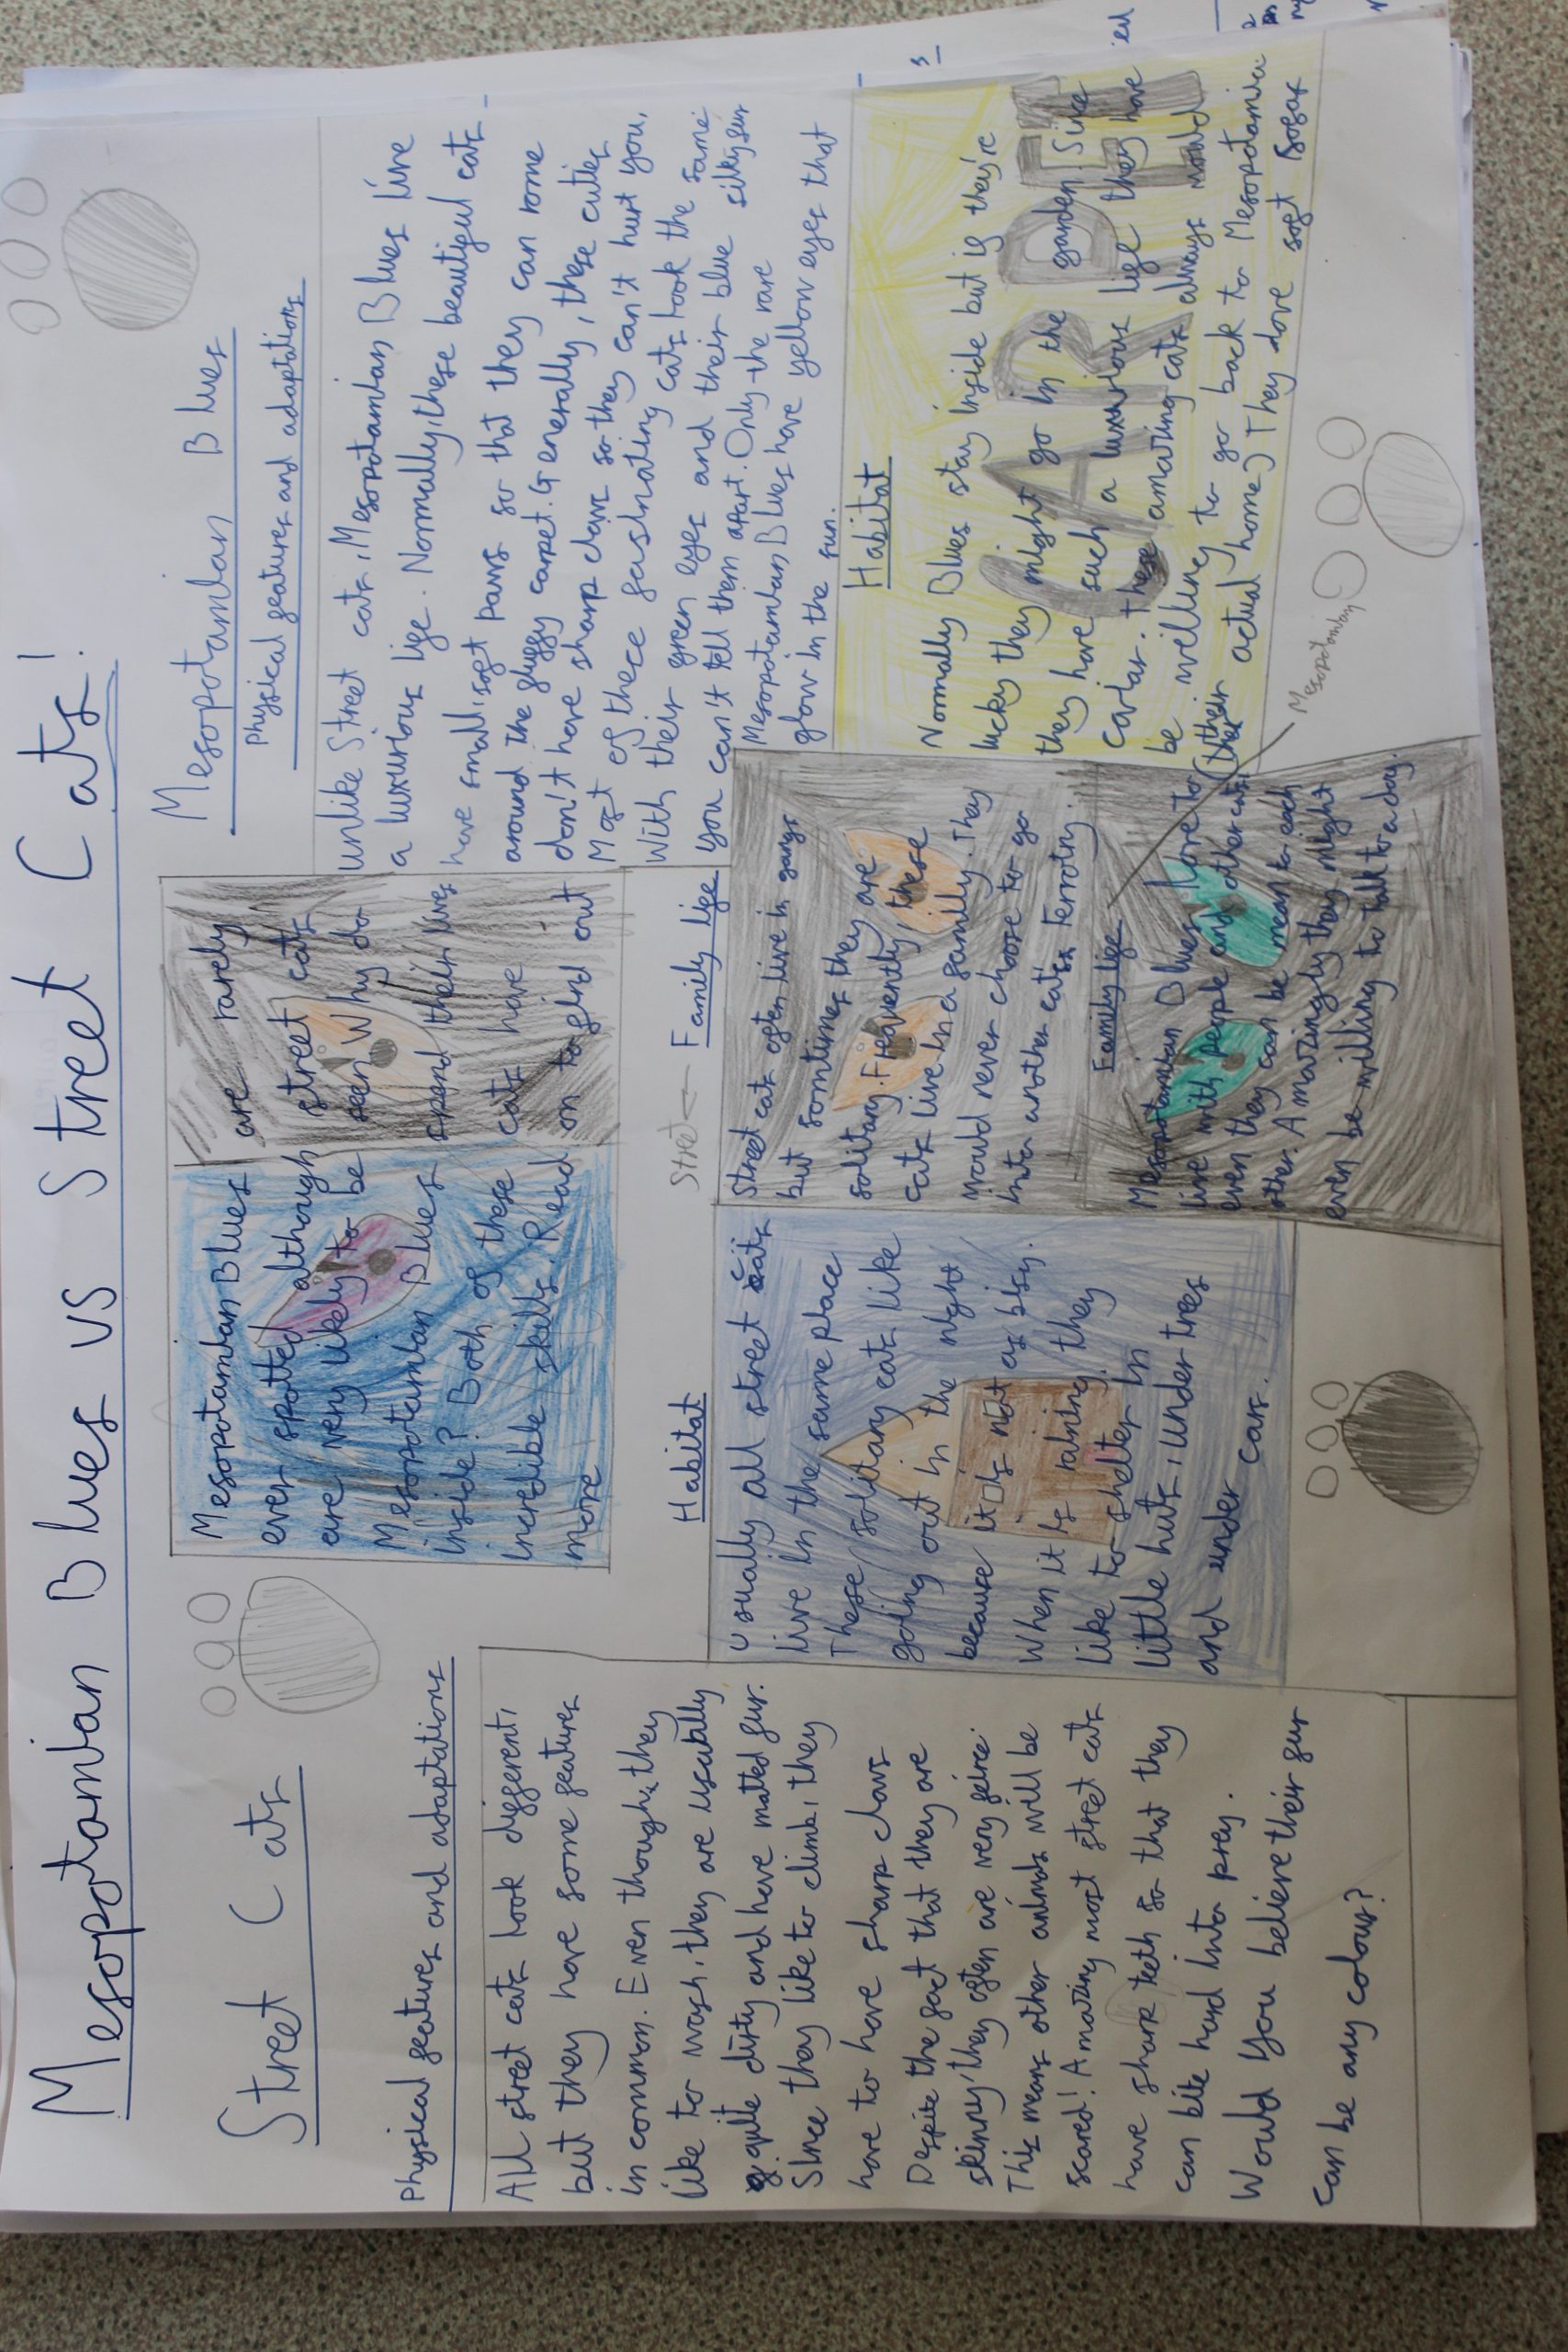 Mesopotamian Blues vs Street Cats!
Street Cats
Physical features and adaptations
All street cats look different,
but they have some features
in common. Even though, they
like to wash, they are usually
quite dirty and have matted fur.
Since they like to climb, they
have to have sharp claws
Despite the fact that they are
skinny, they often are very feirce.
This means other animals will be
scared! Amazing most street cats
have shark teeth so that they
can bite hard into prey.
Would you believe their fur
can be any colour?
Mesopotamian Blues are rarely
ever spotted although street cats
are very likely to be seen Why do
Mesopotamian Blues spend their lives
inside? Both of these cats have
incredible skills. Read on to find out
more
Habitat
Usually all street cats
live in the same place
These solitary cats like
going out in the night
because it is not as bisy.
When it is raining, they
like to shelter in
little huts, under trees
and under cars.
Street ← Family life
Street cats often live in gangs
but somtimes they are
solitary. Freaventy, these
cats live in a family. They
would never choose to go
into another cats terrotry.
Family life
Mesopotamian Blues love to
live with people and other cats
even they can be mean to each
other. Amazingly they might
even be willing to talk to a dog.
Mesopotamian
Mesopotamian Blues
Physical features and adaptations
Unlike Street cats, Mesopotamian Blues live
a luxurious life. Normally, these beautiful cats
have small, soft paws so that they can rome
around the fluffy carpet. Generally, these cuties
don't have sharp claws so they can't hurt you.
Most of thece fasinating cats look the same
With their green eyes and their blue silky fur
you can't tell them apart. Only the rare
Mesopotamian Blues have yellow eyes that
glow in the sun.
Habitat
CARPET
Normally Blues stay inside but if they're
lucky they might go in the garden. Since
they have such a luxurious life they have
collar. These amazing cats always would
be willing to go back to Mesopotamia
(their actual home) They love soft sofas